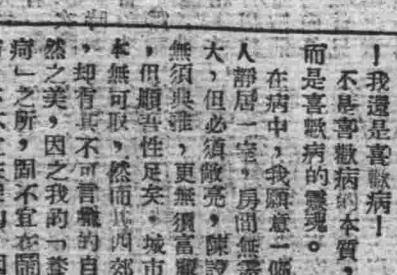 －我還是喜歡病－
不是喜歡病的本質
而是喜歡病的靈魂。
在病中，我願意一個
人靜居一室，房間無需
大，但必須敞亮，陳設
無須典雅，更無須富麗
，但順吾性足矣。城市
本無可取，然而其四郊
，却有其不可言喻的自
然之美，因之我的「養
疴」之所，固不宜在鬧